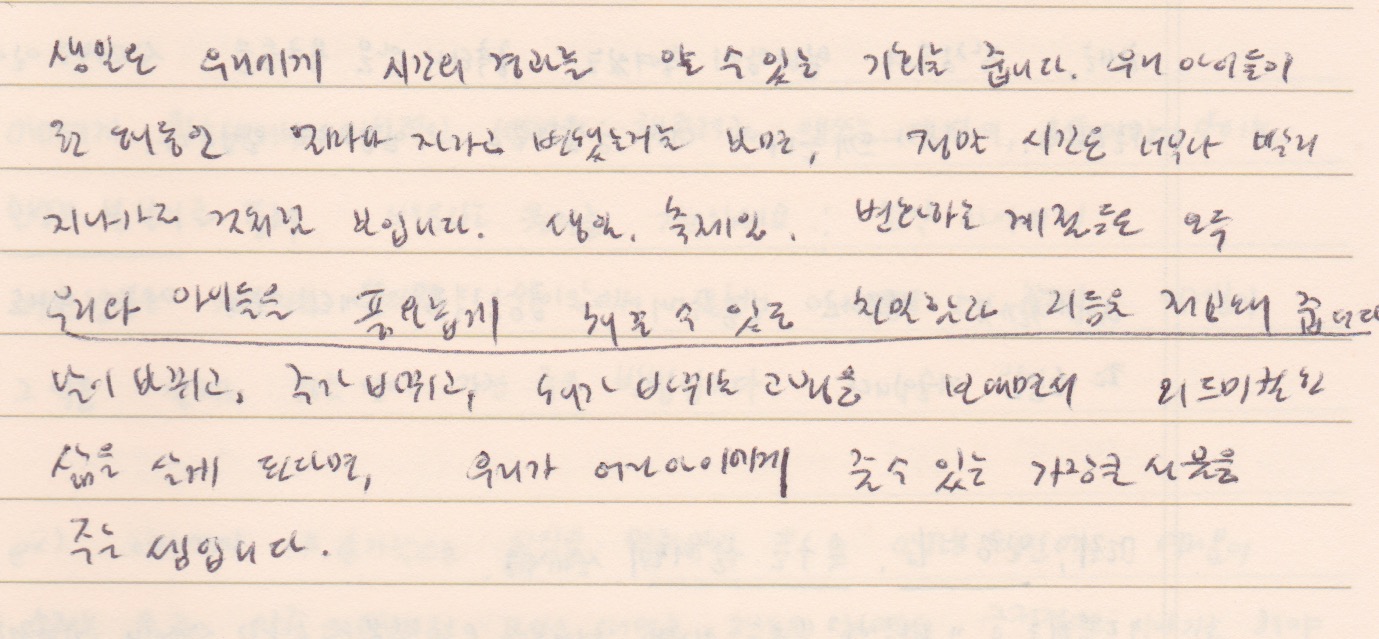 생일은 우리에게 시간의 경과를 알 수 있는 기회를 줍니다. 우리 아이들이
한 해동안 얼마나 자라고 변했는지를 보면, 정말 시간은 너무나 빨리
지나가는 것처럼 보입니다. 생일, 축제일, 변화하는 계절들은 모두
우리와 아이들을 풍요롭게 해줄 수 있는 친밀함과 리듬을 제공해 줍니다
날이 바뀌고, 주가 바뀌고, 해가 바뀌는 고백을 보내면서 리드미컬한
삶을 살게 된다면, 우리가 어린아이에게 줄 수 있는 가장 큰 선물을
주는 셈입니다.